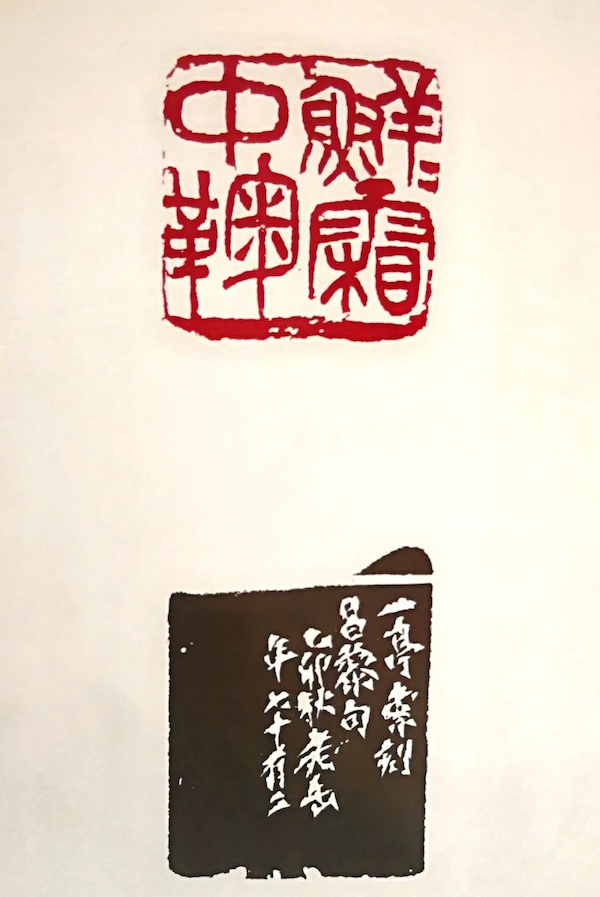 鮮〻霜
中鞠
一亭索刻
昌黎句
乙卯秋老缶
年七十有二